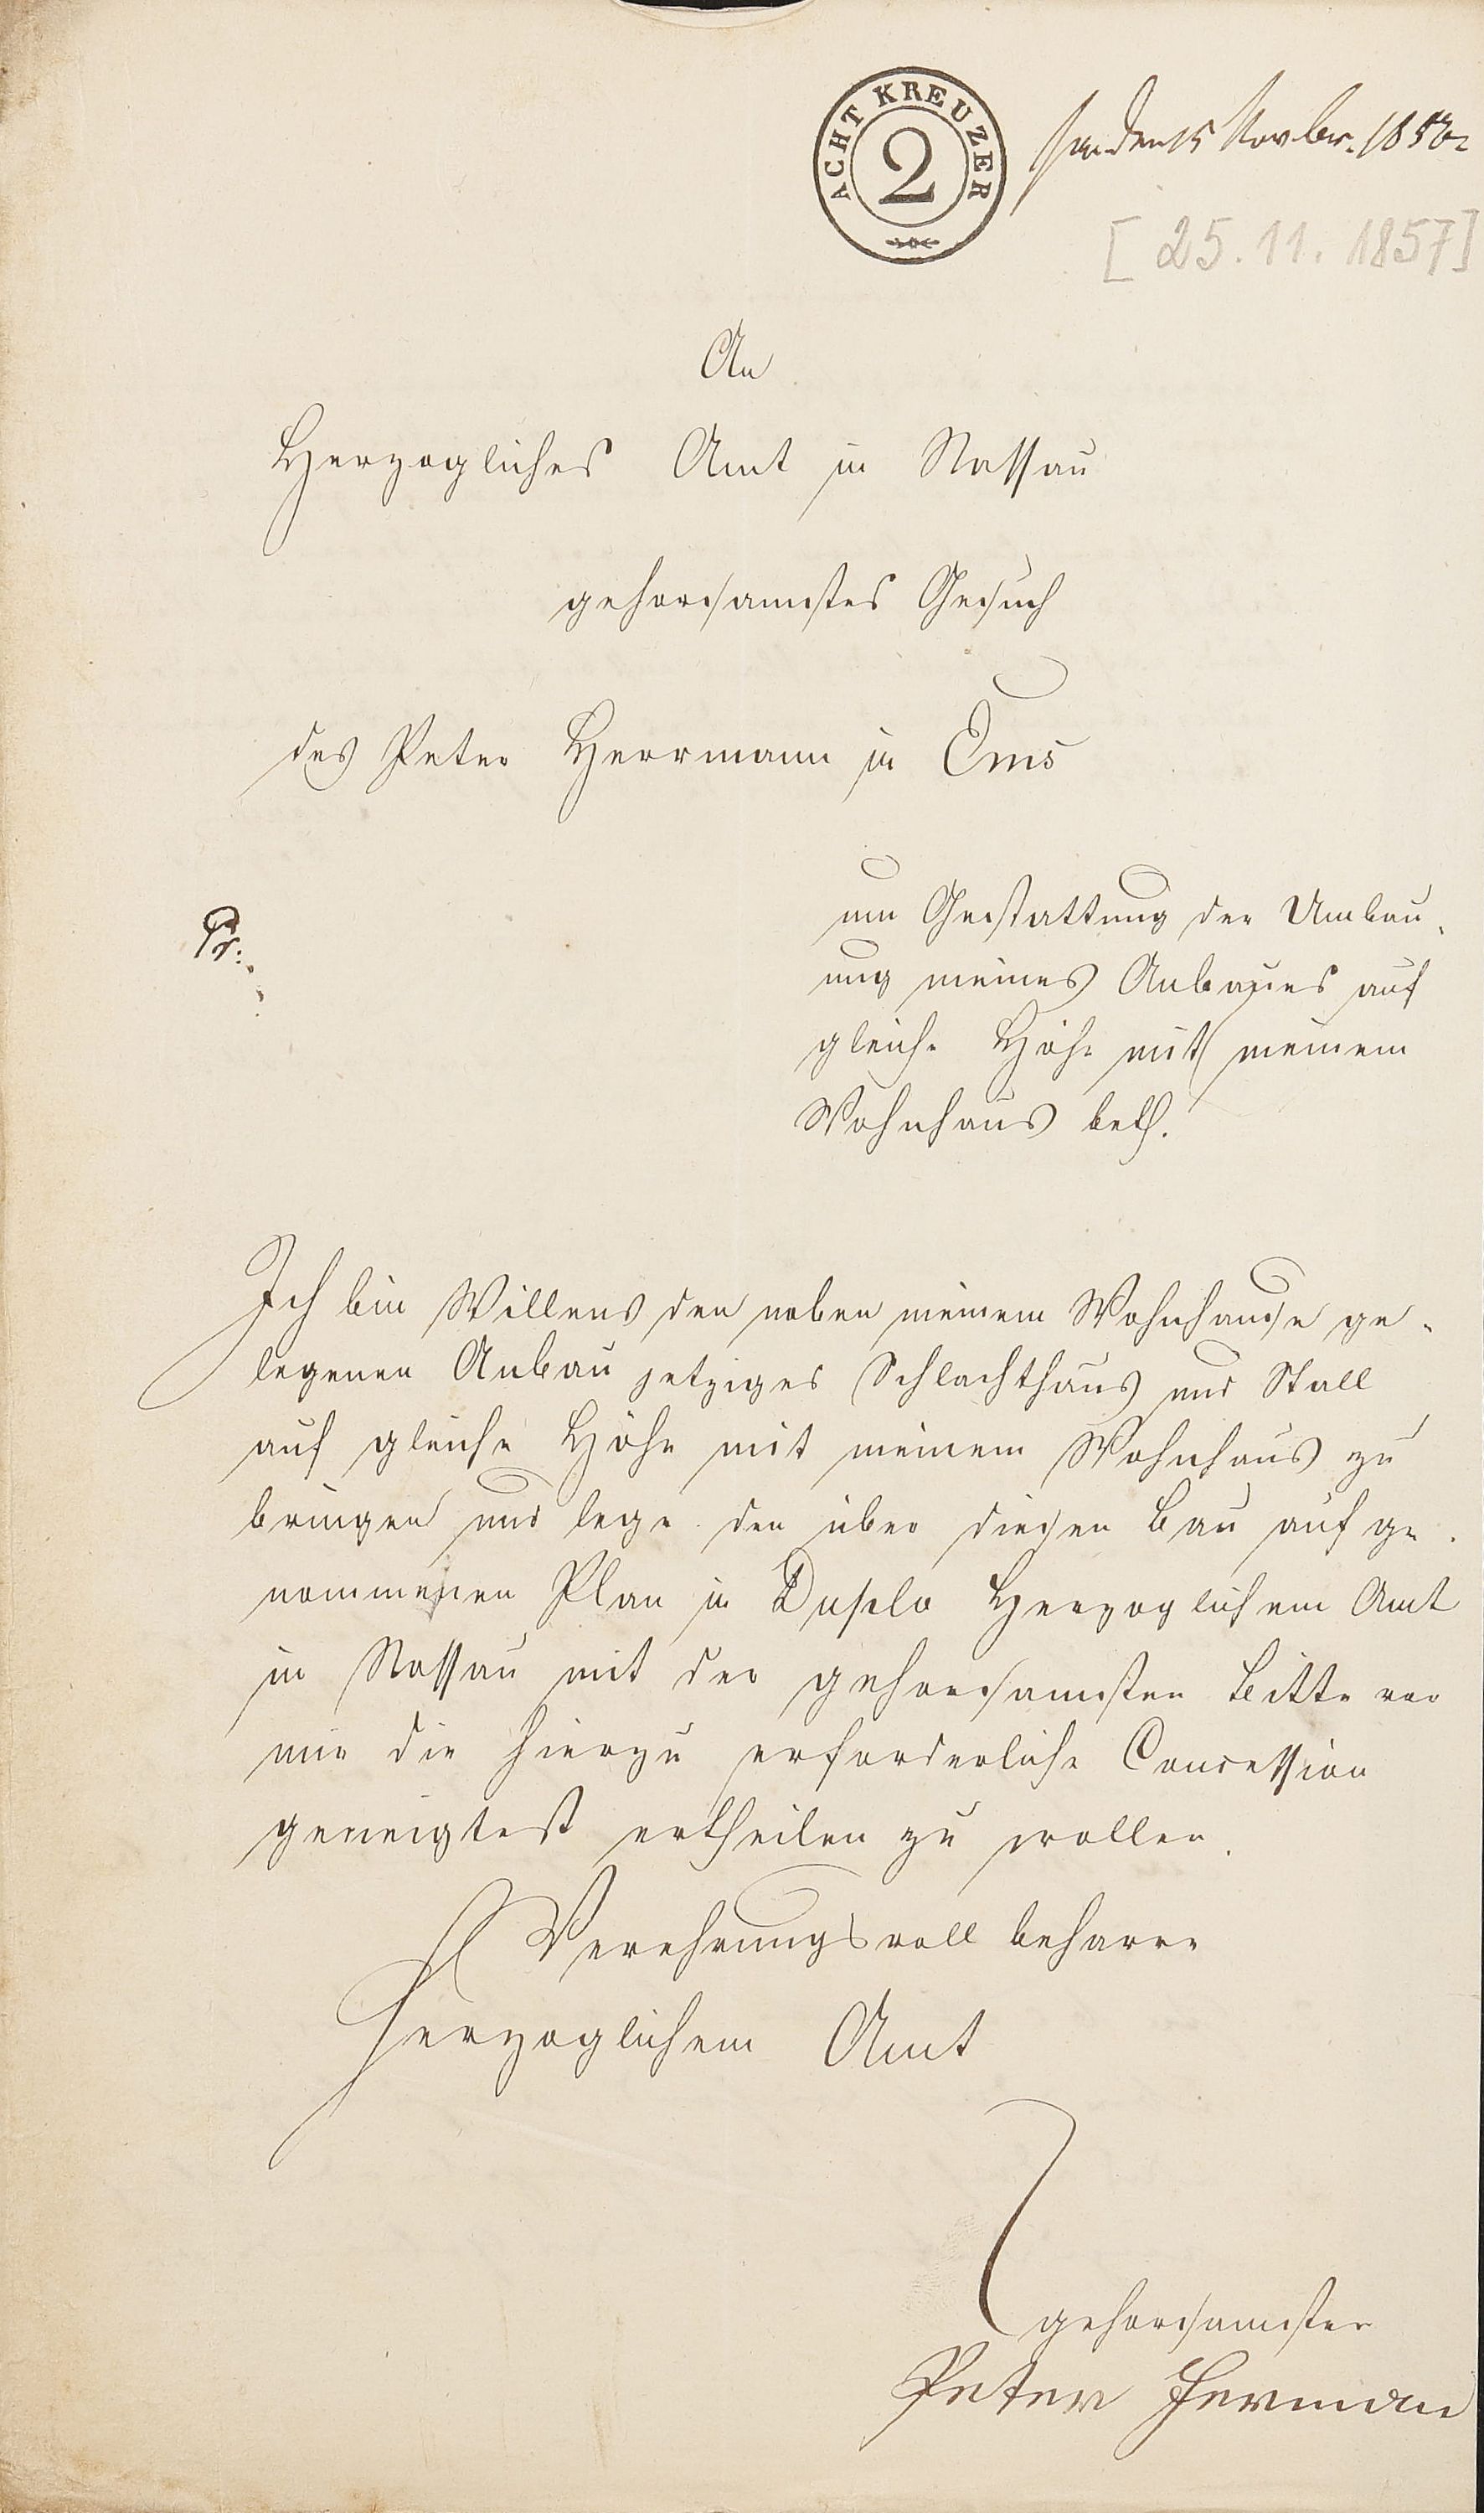 ACHT KREUZER
2
den 15 Novbr. 185
[25.11.1857]
An
Herzogliches Amt in Nassau
gehorsamstes Gesuch
des Peter Herrmann in Ems
Pr.
um Gestattung der Umbau-
ung meines Anbaues auf
gleiche Höhe mit meinem
Wohnhaus betf.
Ich bin Willens den neben meinem Wohnhause ge-
legenen Anbau jetziges Schlachthaus und Stall
auf gleiche Höhe mit meinem Wohnhaus zu
bringen und lege den über diesen Bau aufge-
nommenen Plan in Duplo Herzoglichem Amt
in Nassau mit der gehorsamsten Bitte vor
mir die hierzu erforderliche Concession
geneigtest ertheilen zu wollen.
Verehrungsvoll beharre
Herzoglichem Amt
gehorsamster
Peter Herman